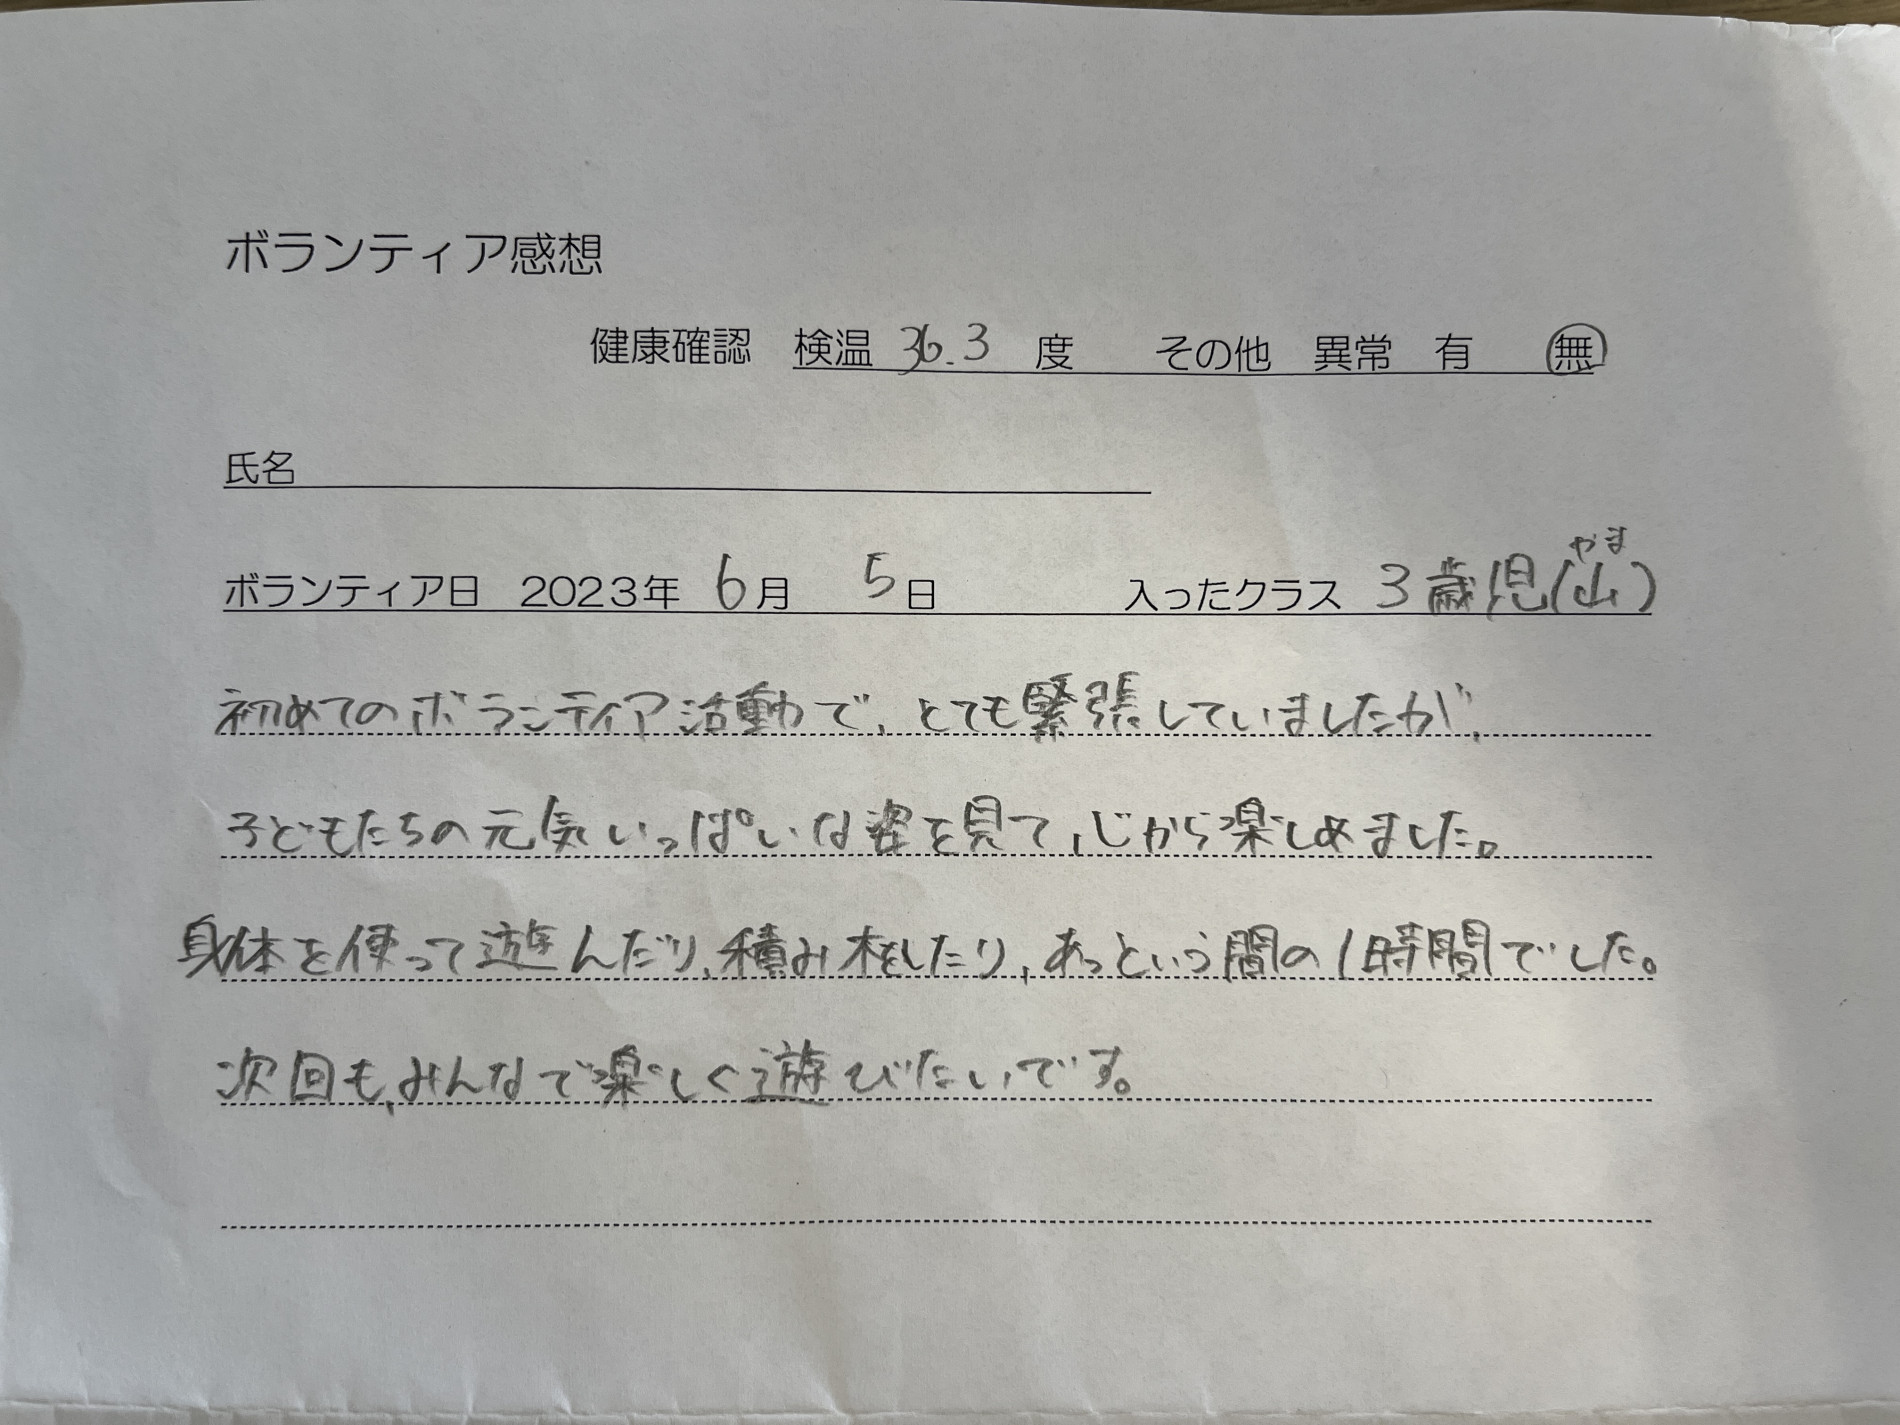 ボランティア感想
健康確認 検温 36.3 度 その他 異常 有 無
氏名
ボランティア日 2023年 6月 5日 入ったクラス 3歳児(山)
やま
初めてのボランティア活動で、とても緊張していましたが、
子どもたちの元気いっぱいな姿を見て、心から楽しめました。
身体を使って遊んだり、積み木をしたり、あっという間の1時間でした。
次回も、みんなで楽しく遊びたいです。